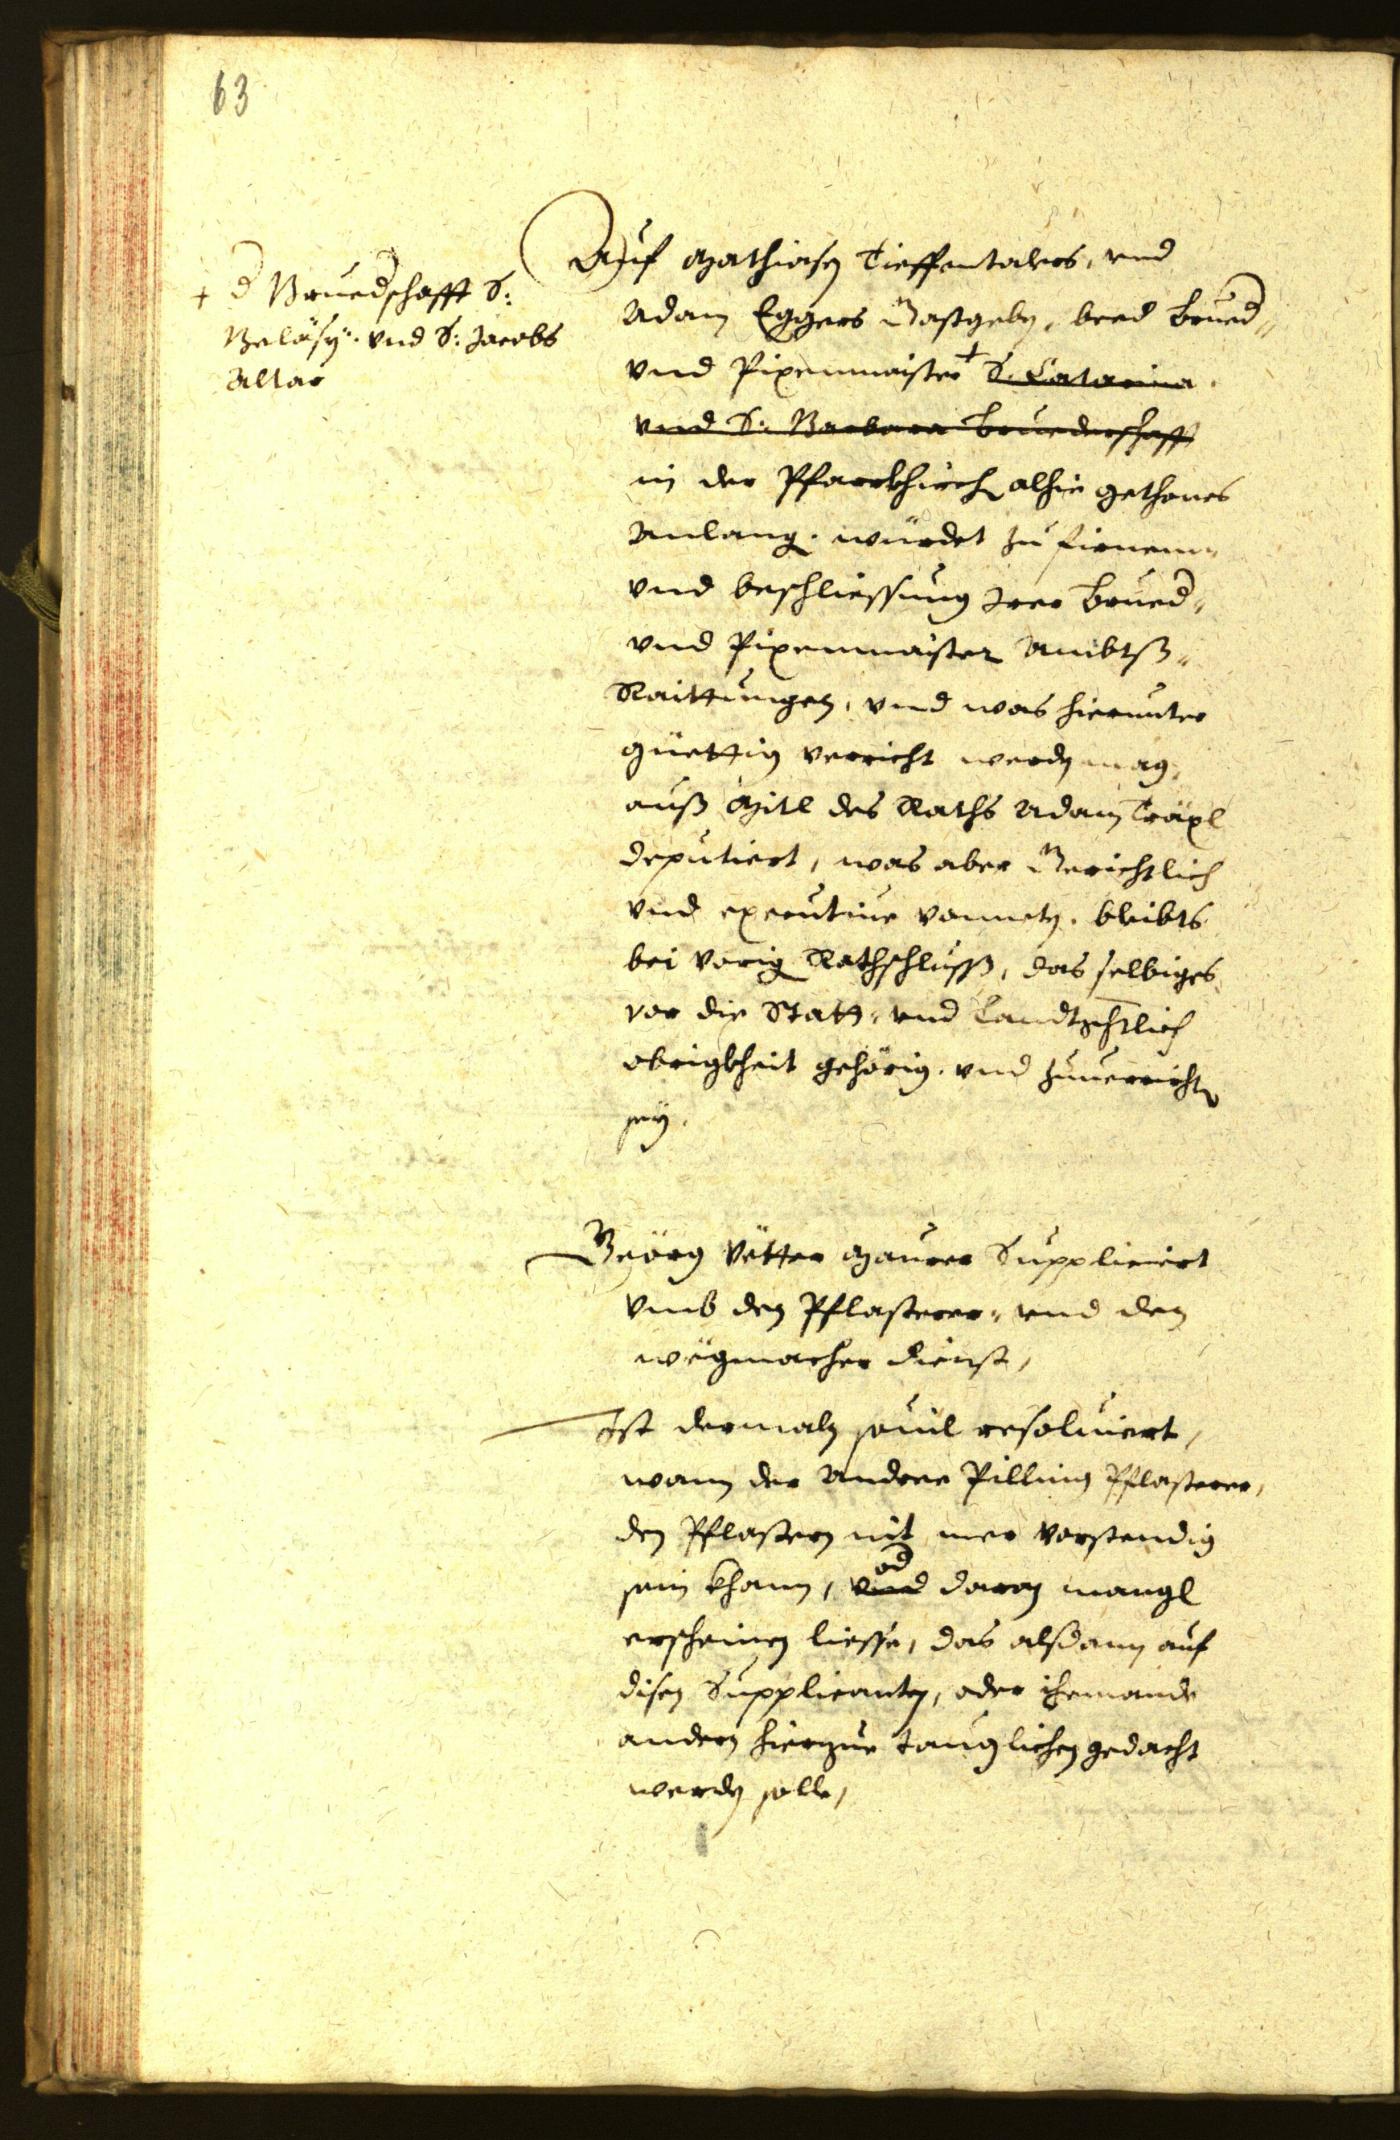 63
+ d Bruedschafft S:
Beläsy. vnd S: Jacobs
Altar
Auf Mathiasen Tieffentalers, vnd
Adam Eggers Gastgeby, beed Brued„
vnd Pixenmaister + S. Catarina
vnd S: Barbara Bruederschafft
in der Pfarrkhirch alhie gethones
Anlang. würdet zu firnem„
vnd beschliessung Irer Brued„
vnd Pixenmaister Ambtß„
Raittungen, vnd was hierunter
güettig verricht werdn mag,
auß Mitl des Raths Adam Träxl
deputiert, was aber Gerichtlich
vnd executiue bleibts
bei vorig Rathschluß, das selbiges
vor die Statt„ vnd Landtgchtlich
obrigkheit gehörig. vnd zuuerrichtn
sey.
Geörg Vëtter Maurer Suppliciert
vmb den Pflasterer„ vnd den
wëgmacher dienst,
Ist dermaln souil resoluiert,
wann der Andree Pilling Pflasterer,
den Pflastern nit mer vorstendig
sein khann, vnd od daran mangl
erscheinen liesse, das alßdann auf
disen Supplicanten, oder iemande
andern hierzue tauglichen gedacht
werdn solle,